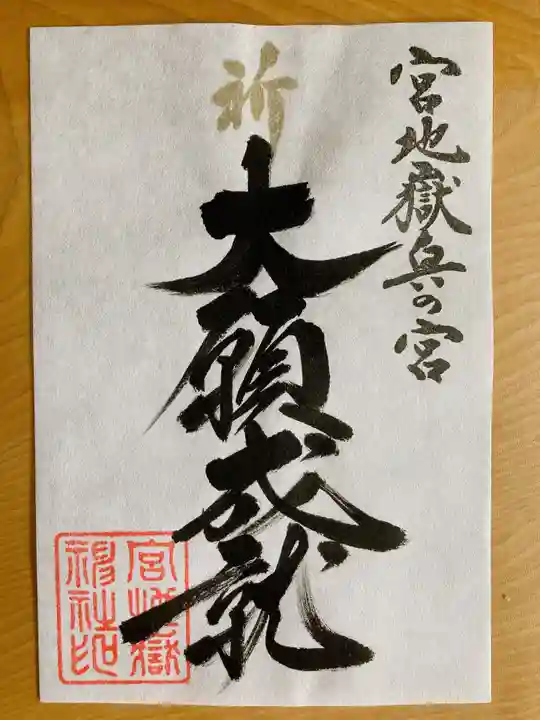 宮地嶽奥の宮
祈
大願成就
宮地嶽
神社印